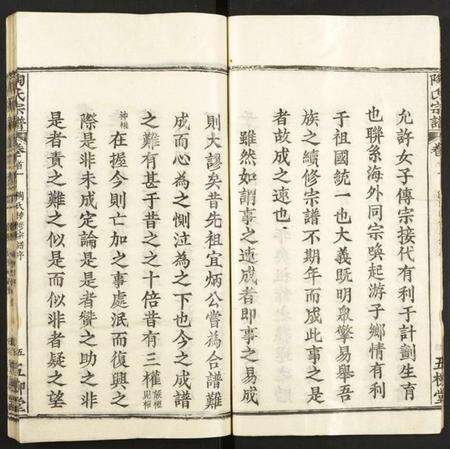 陶氏宗譜
允許女子傳宗接代有利于計劃生育
也聯系海外同宗喚起游子鄉情有利
于祖國統一也大義既明衆擎易舉吾
族之續修宗譜不期年而成此事之是
者故成之速也
雖然如謂事之速成者即事之易成
五柳堂
陶氏宗譜
五 五柳堂
則大謬矣昔先祖宜炳公嘗為合譜難
成而心為之惻泣為之下也今之成譜
之難有甚于昔之十倍昔有三權
神權
在握今則亡加之事處泯而復興之
際是非未成定論是是者贊之助之非
是者責之難之似是而似非者疑之望